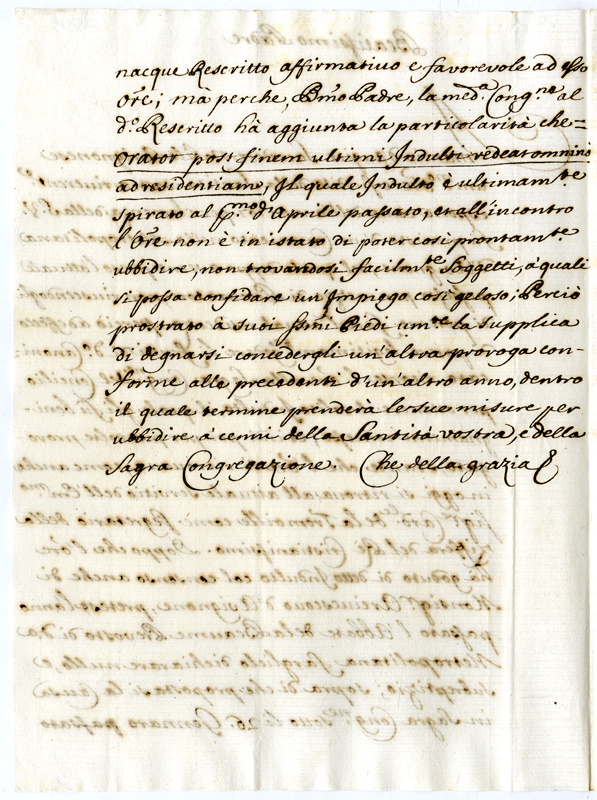 nacque Rescritto affirmativo e favorevole ad esso
Ore; mà perche, Bmo Padre, la med.a Cong.ne al
d.o Rescritto hà aggiunta la particolarità che=
Orator post finem ultimi Indulti redeat omnino
ad residentiam, Il quale Indulto è ultimam.te
spirato al p.mo d'Aprile passato, et all'incontro
l'Ore non è in istato di poter così prontam.te
ubbidire, non trovandosi facilm.te Soggetti, à quali
si possa confidare un'Impiego così geloso; Perciò
prostrato à suoi ssmi Piedi um.te la supplica
di degnarsi concedergli un'altra proroga con-
forme alle precedenti d'un'altro anno, dentro
il quale termine prenderà le sue misure per
ubbidire à cenni della Santità vostra, e della
Sagra Congregazione. Che della grazia